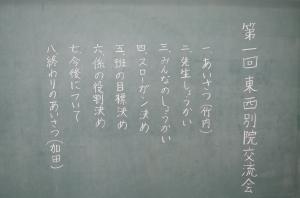 第一回 東西別院交流会
一、あいさつ(竹内)
二、先生しょうかい
三、みんなのしょうかい
四、スローガン決め
五、班の目標決め
六、係の役割決め
七、今後について
八、終わりのあいさつ(加田)